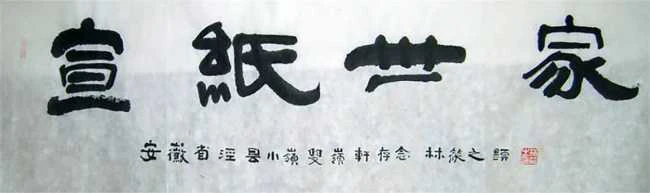 宣紙世家
安徽省涇县小嶺雙嶺軒存念 林筱之題